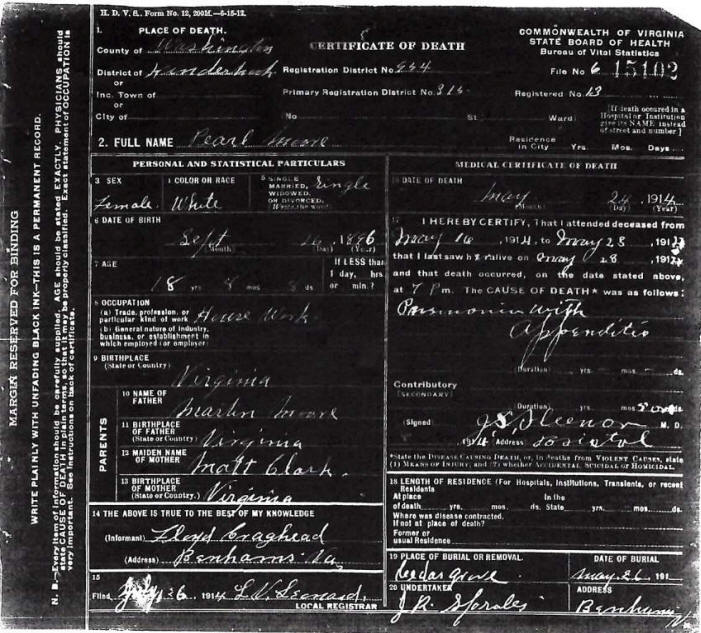 H. D. V. S. Form No. 12, 200M.—6-15-12.
1. PLACE OF DEATH.
County of Washington
District of
or
Inc. Town of
or
City of
CERTIFICATE OF DEATH
Registration District No. 954
Primary Registration District No. 315
No St. Ward
COMMONWEALTH OF VIRGINIA
STATE BOARD OF HEALTH
Bureau of Vital Statistics
File No 6 15102
Registered No. 13
[If death occured in a
Hospital or Institution
give its NAME instead
of street and number]
2. FULL NAME Pearl Moore
Residence
in City Yrs. Mos. Days
PERSONAL AND STATISTICAL PARTICULARS
3 SEX
Female
4 COLOR OR RACE
White
5 SINGLE
MARRIED,
WIDOWED,
OR DIVORCED.
(Write the word)
Single
6 DATE OF BIRTH
Sept 16 1896
(Month) (Day) (Year)
7 AGE
18 yrs 8 mos 8 ds
If LESS than
1 day, hrs
or min.?
8 OCCUPATION
(a) Trade, profession, or
particular kind of work House Work
(b) General nature of industry,
business, or establishment in
which employed (or employer)
9 BIRTHPLACE
(State or Country)
Virginia
PARENTS
10 NAME OF
FATHER
Martin Moore
11 BIRTHPLACE
OF FATHER
(State or Country) Virginia
12 MAIDEN NAME
OF MOTHER
Matt Clark.
13 BIRTHPLACE
OF MOTHER
(State or Country) Virginia
14 THE ABOVE IS TRUE TO THE BEST OF MY KNOWLEDGE
(Informant) Floyd Craghead
(Address) Benhams Va,
15
Filed July 26 1914 L. V. Leonard,
LOCAL REGISTRAR
MEDICAL CERTIFICATE OF DEATH
16 DATE OF DEATH
May 24 1914
(Month) (Day) (Year)
17 I HEREBY CERTIFY, That I attended deceased from
May 16 1914, to May 23, 191
that I last saw h alive on May 23, 191
and that death occurred, on the date stated above,
at 7 Pm. The CAUSE OF DEATH* was as follows:
Pneumonia with
Appenditis
(Duration) yrs. mos. ds.
Contributory
(SECONDARY)
(Duration) yrs. mos. ds.
(Signed) M. D.
1914 (Address)
*State the DISEASE CAUSING DEATH, or, in deaths from VIOLENT CAUSES, state
(1) MEANS OF INJURY; and (2) whether ACCIDENTAL, SUICIDAL or HOMICIDAL.
18 LENGTH OF RESIDENCE (For Hospitals, Institutions, Transients, or recent
Residents
At place In the
of death yrs. mos. ds. State yrs. mos. ds.
Where was disease contracted,
If not at place of death?
Former or
usual Residence
19 PLACE OF BURIAL OR REMOVAL DATE OF BURIAL
Cedar Grove May 26, 191
20 UNDERTAKER ADDRESS
J. R. Benhams
MARGIN RESERVED FOR BINDING
WRITE PLAINLY WITH UNFADING BLACK INK—THIS IS A PERMANENT RECORD.
N. B.—Every item of information should be carefully supplied. AGE should be stated EXACTLY. PHYSICIANS should
state CAUSE OF DEATH in plain terms, so that it may be properly classified. Exact statement of OCCUPATION is
very important. See instructions on back of certificate.